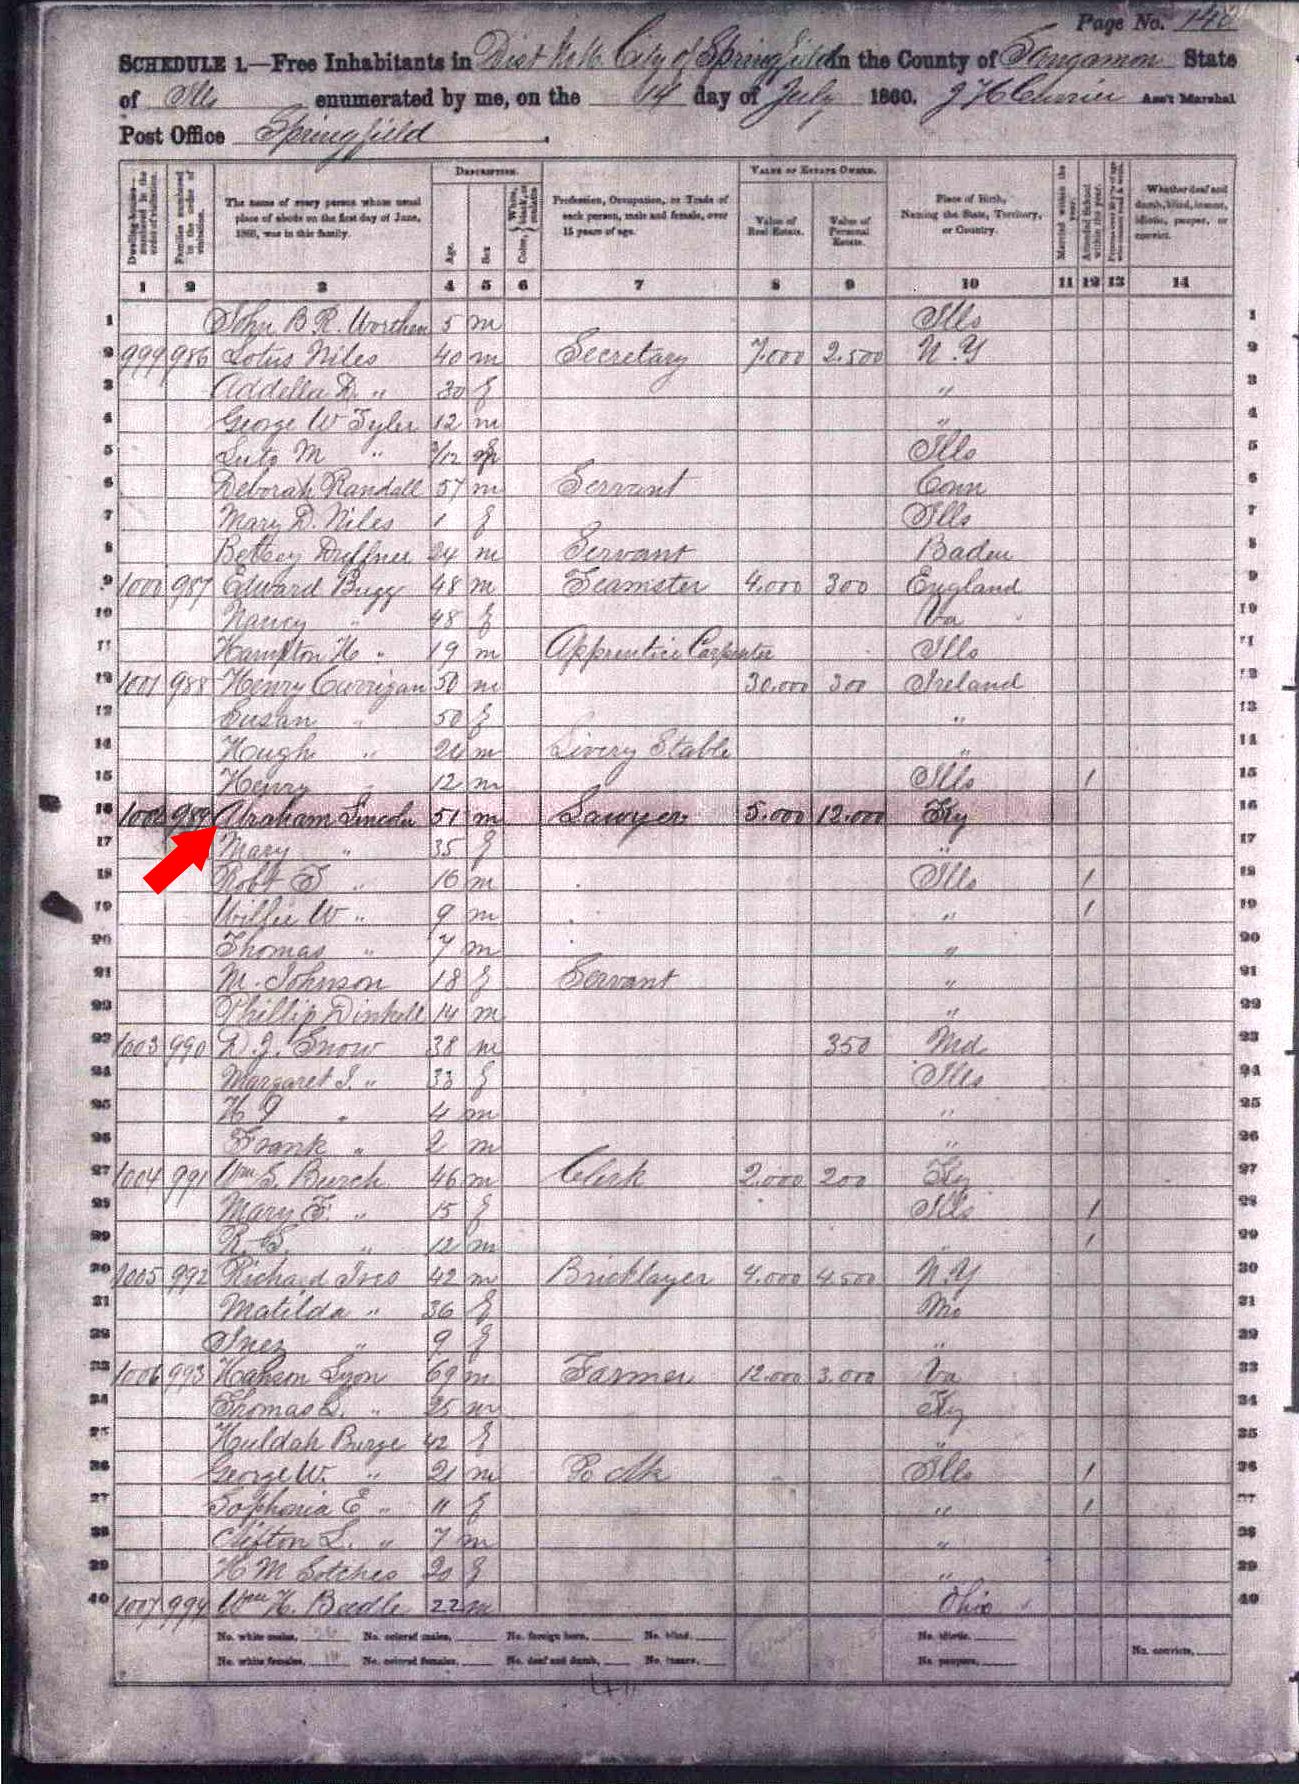 Page No. 140
SCHEDULE 1.—Free Inhabitants in Dist No 16 City of Springfield in the County of Sangamon State
of Ills enumerated by me, on the 14 day of July 1860. J H Currier Ass't Marshal
Post Office Springfield.
Dwelling-houses—numbered in the order of visitation.
Families numbered in the order of visitation.
The name of every person whose usual place of abode on the first day of June, 1860, was in this family.
DESCRIPTION.
Age.
Sex
Color, White, black, or mulatto
Profession, Occupation, or Trade of each person, male and female, over 15 years of age.
VALUE OF ESTATE OWNED.
Value of Real Estate.
Value of Personal Estate.
Place of Birth, Naming the State, Territory, or Country.
Married within the year.
Attended School within the year.
Whether deaf and dumb, blind, insane, idiotic, pauper, or convict.
1 2 3 4 5 6 7 8 9 10 11 12 13 14
1 John B. R. Worthen 5 m Ills 1
2 999 986 Lotus Niles 40 m Secretary 7.000 2.500 N.Y 2
3 Addella D. " 30 f " 3
4 George W Tyler 12 m " 4
5 M " f Ills 5
6 Deborah Randall 57 m Servant Conn 6
7 Mary D. Niles 1 f Ills 7
8 Betsey Duffner 24 m Servant Baden 8
9 1000 987 Edward Bugg 48 m Teamster 4.000 300 England 9
10 Nancy " 48 f Va 10
11 Hampton H " 19 m Apprentice Carpenter Ills 11
12 1001 988 Henry Corrigan 50 m 30.000 300 Ireland 12
13 Susan " 50 f " 13
14 Hough " 24 m Livery Stable " 14
15 Henry 12 m Ills 1 15
16 1002 989 Abraham Lincoln 51 m Lawyer 5.000 12.000 Ky 16
17 Mary " 35 f " 17
18 Robt T " 16 m Ills 1 18
19 Willie W " 9 m " 1 19
20 Thomas " 7 m " 20
21 M. Johnson 18 f Servant " 21
22 Phillip Dinkell 14 m " 22
23 1003 990 D. J. Snow 38 m 350 Md 23
24 Margaret J. " 33 f Ills 24
25 " 4 m " 25
26 Frank " 2 m " 26
27 1004 991 Wm S. Burch 46 m Clerk 2.000 200 Ky 27
28 Mary F. " 15 f Ills 1 28
29 R. S. " 12 m " 1 29
30 1005 992 Richard Ives 42 m Bricklayer 4.000 4.500 N.Y 30
31 Matilda " 36 f Mo 31
32 Inez " 9 f " 32
33 1006 993 Hanson Lyon 69 m Farmer 12.000 3.000 Va 33
34 Thomas " 25 m Ky 34
35 Huldah Burge 42 f " 35
36 George W. " 21 m Ills 1 36
37 Sophonia E " 11 f " 1 37
38 Clifton L. " 7 m " 38
39 H M 20 f " 39
40 1007 994 Wm H. Beedle 22 m Ohio 40
No. white males, No. colored males, No. foreign born, No. blind, No. idiotic,
No. white females, No. colored females, No. deaf and dumb, No. insane, No. paupers, No. convicts,